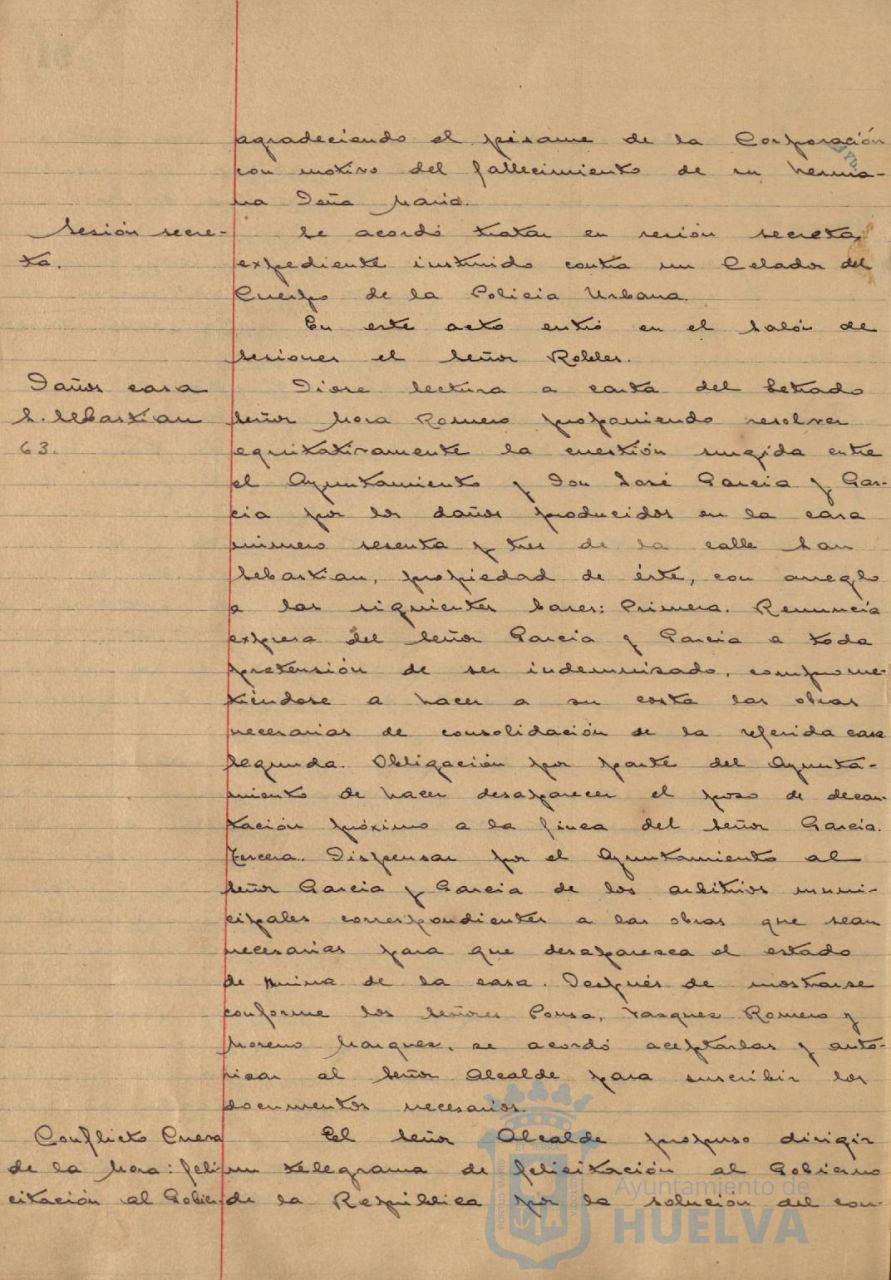 agradeciendo el pésame de la Corporación
con motivo del fallecimiento de su herma-
na Doña María.
Sesión secre-
ta.
Se acordó tratar en sesión secreta,
expediente instruido contra un Celador del
Cuerpo de la Policia Urbana.
En este acto entró en el Salón de
Sesiones el Señor Robles.
Daños casa
S. Sebastian
63.
Diose lectura a carta del Letrado
Señor Mora Romero proponiendo resolver
equitativamente la cuestión surgida entre
el Ayuntamiento y Don José Garcia y Gar-
cia por los daños producidos en la casa
número sesenta y tres de la calle San
Sebastian, propiedad de éste, con arreglo
a las siguientes bases: Primera. Renuncia
expresa del Señor Garcia y Garcia a toda
pretensión de ser indemnizado, comprome-
tiéndose a hacer a su costa las obras
necesarias de consolidación de la referida casa
Segunda. Obligación por parte del Ayunta-
miento de hacer desaparecer el poso de decan-
tación próximo a la finca del Señor Garcia.
Tercera. Dispensar por el Ayuntamiento al
Señor Garcia y Garcia de los arbitrios muni-
cipales correspondientes a las obras que sean
necesarias para que desaparezca el estado
de ruina de la casa. Después de mostrarse
conforme los Señores Ponsa, Vasquez Romero y
Moreno Marquez, se acordó aceptarlas y auto-
rizar al Señor Alcalde para suscribir los
documentos necesarios.
Conflicto Cuenca
de la Mora: feli-
citación al Gobier-
El Señor Alcalde propuso dirigir
un telegrama de felicitación al Gobierno
de la República por la solución del con-
Ayuntamiento de
HUELVA